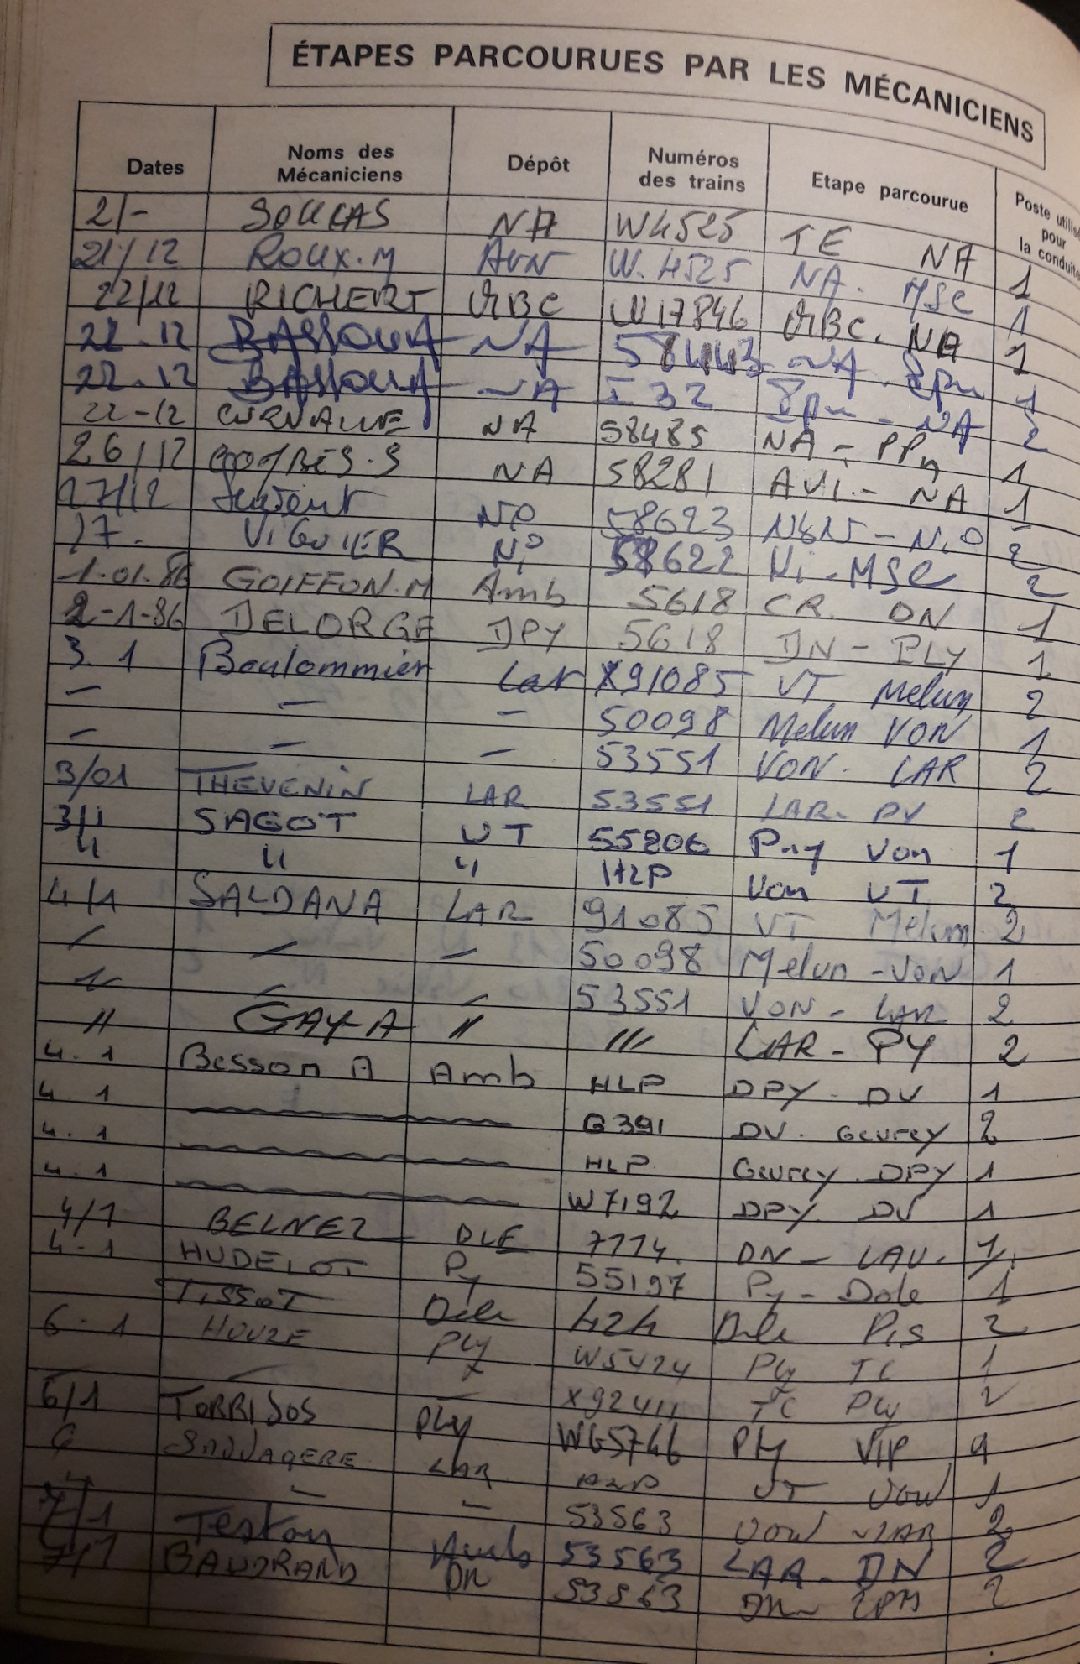 ÉTAPES PARCOURUES PAR LES MÉCANICIENS
Dates Noms des Mécaniciens Dépôt Numéros des trains Etape parcourue Poste utilisé pour la conduite
2/- NA W4525 TE NA 1
21/12 ROUX.M AVN W.4525 NA. MSC 1
22/12 RICHERT VBC W17846 VBC. NA 1
22.12 NA 58443 NA. 1
22.12 NA I 32 - NA 2
22-12 NA 58485 NA - PPn 1
26/12 NA 58281 AVI - NA 1
27/12 58623 2
17. VIGUIER Ni 58622 Ni - MSC 2
1.01.86 GOIFFON.M Amb 5618 CR. DN 1
2-1-86 DELORGE DPY 5618 DN - PLY 1
3.1 Boulommier Lar X91085 VT Melun 2
— — — 50098 Melun VON 1
— — — 53551 VON. LAR 2
3/01 THEVENIN LAR 53551 LAR. PY 2
3/1 SAGOT VT 55206 Pny Von 1
" " " HLP Von VT 2
4/1 SALDANA LAR 91085 VT Melun 2
— — — 50098 Melun - VON 1
— — — 53551 VON - LAR 2
" GAY A " /// LAR - PY 2
4.1 Besson A Amb HLP DPY. DV 1
4.1 G391 DV. Gevrey 2
4.1 HLP Gevrey. DPY 1
4.1 W7192 DPY. DV 1
4/1 BELNEZ DLE 7774 DN - LAU. 1
4-1 HUDELOT Py 55197 Py - Dole 1
TISSOT Dole 424 Dole 2
6.1 HOUZE PLY W5424 PLY TC 1
— X92411 TC PLY 2
6/1 TORRIJOS PLY W65746 PLY VIP
6 LAR VT VON 1
— — 53563 VON - LAR 2
7/1 Amb 53563 LAR - DN 2
7/1 BAUDRAND DN 53563 2